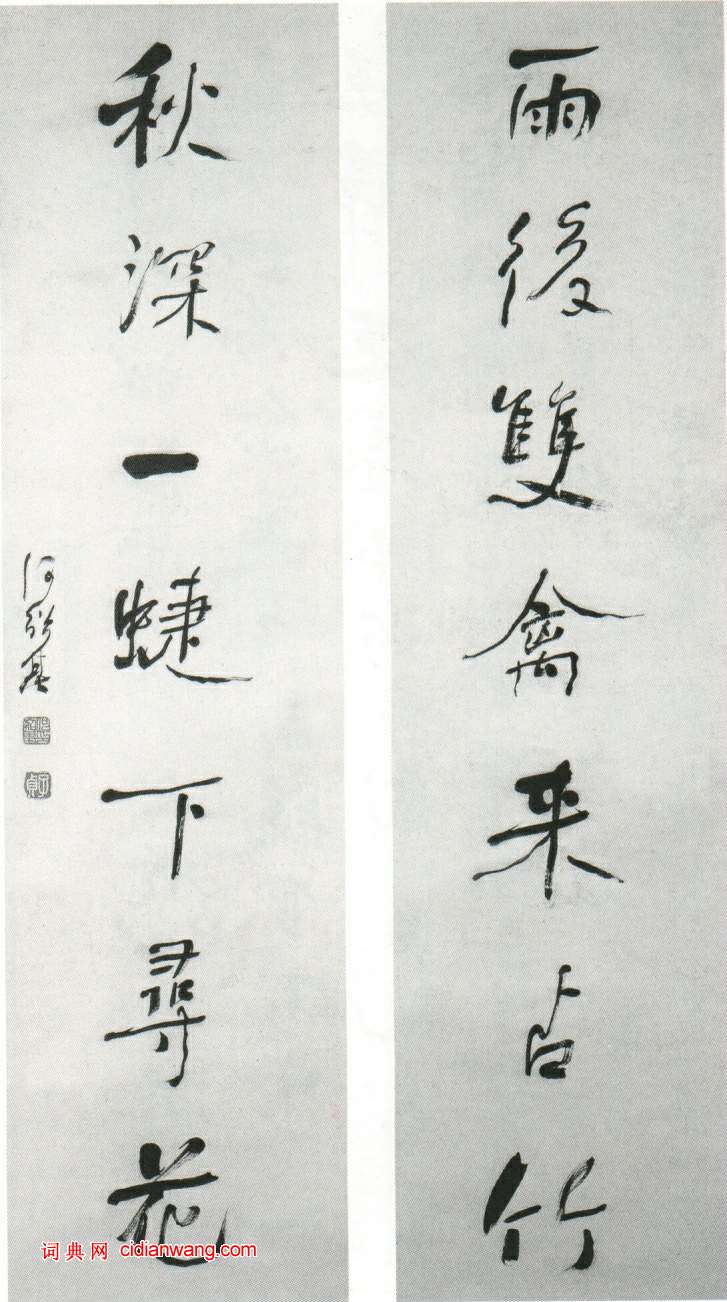 雨後雙禽来占竹
秋深一蜨下尋花
何紹基
子貞
词典网 cidianwang.com